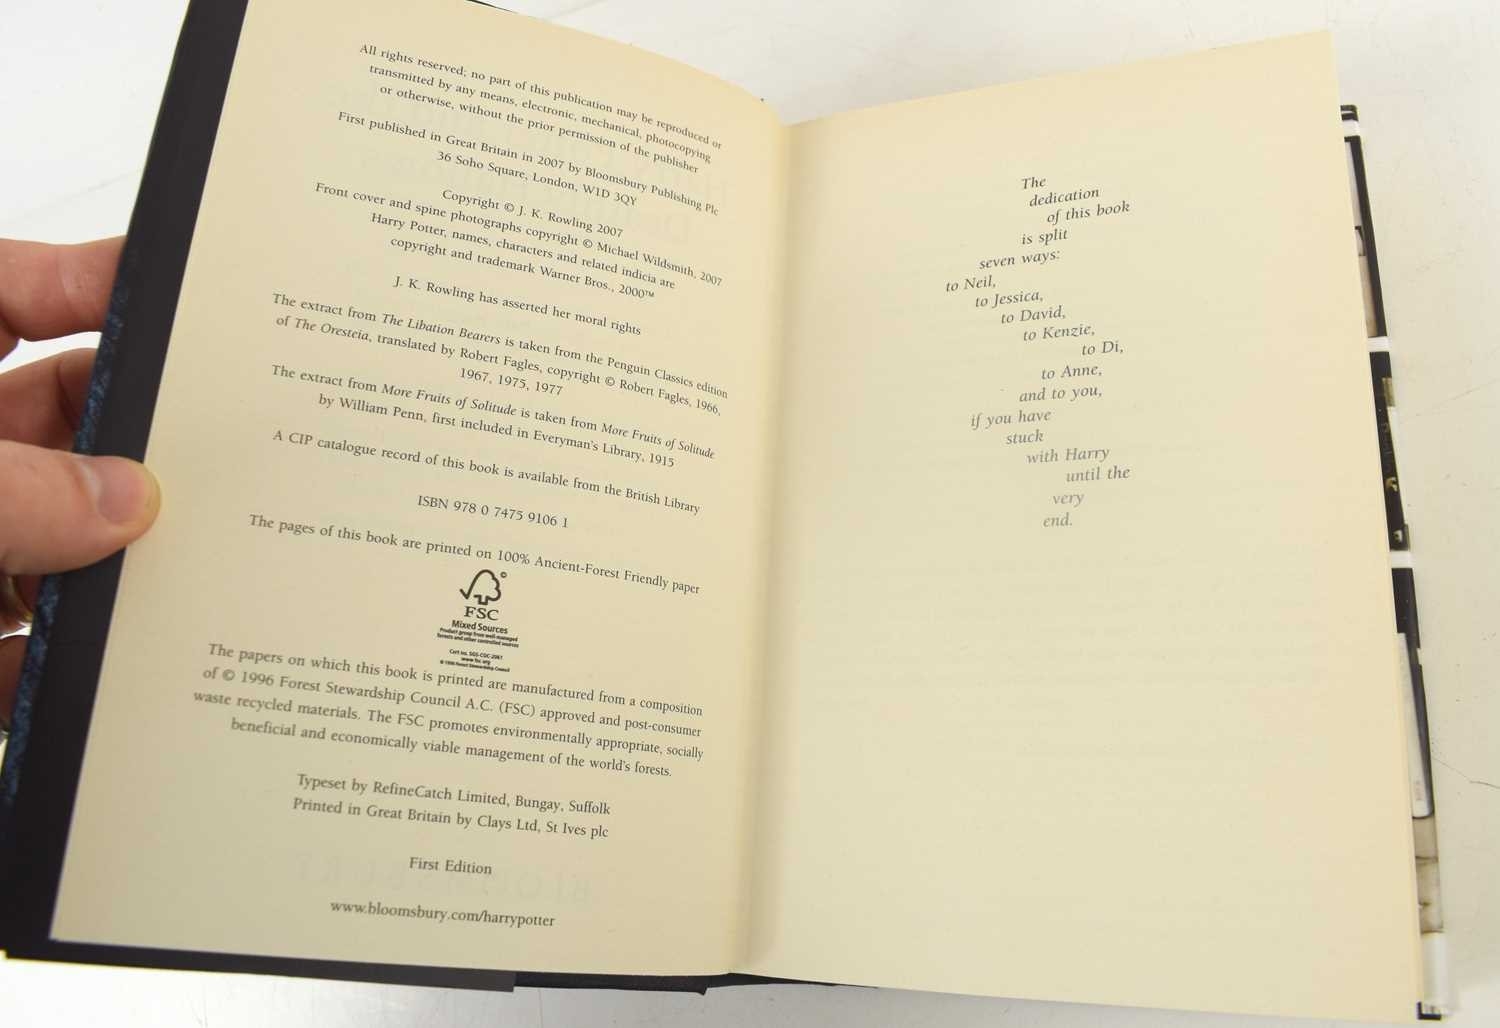 All rights reserved; no part of this publication may be reproduced or
transmitted by any means, electronic, mechanical, photocopying
or otherwise, without the prior permission of the publisher
First published in Great Britain in 2007 by Bloomsbury Publishing Plc
36 Soho Square, London, W1D 3QY
Copyright © J. K. Rowling 2007
Front cover and spine photographs copyright © Michael Wildsmith, 2007
Harry Potter, names, characters and related indicia are
copyright and trademark Warner Bros., 2000™
J. K. Rowling has asserted her moral rights
The extract from The Libation Bearers is taken from the Penguin Classics edition
of The Oresteia, translated by Robert Fagles, copyright © Robert Fagles, 1966,
1967, 1975, 1977
The extract from More Fruits of Solitude is taken from More Fruits of Solitude
by William Penn, first included in Everyman's Library, 1915
A CIP catalogue record of this book is available from the British Library
ISBN 978 0 7475 9106 1
The pages of this book are printed on 100% Ancient-Forest Friendly paper
©
FSC
Mixed Sources
Product group from well-managed
forests and other controlled sources
Cert no. SGS-COC-2061
www.fsc.org
© 1996 Forest Stewardship Council
The papers on which this book is printed are manufactured from a composition
of © 1996 Forest Stewardship Council A.C. (FSC) approved and post-consumer
waste recycled materials. The FSC promotes environmentally appropriate, socially
beneficial and economically viable management of the world's forests.
Typeset by RefineCatch Limited, Bungay, Suffolk
Printed in Great Britain by Clays Ltd, St Ives plc
First Edition
www.bloomsbury.com/harrypotter
The
dedication
of this book
is split
seven ways:
to Neil,
to Jessica,
to David,
to Kenzie,
to Di,
to Anne,
and to you,
if you have
stuck
with Harry
until the
very
end.